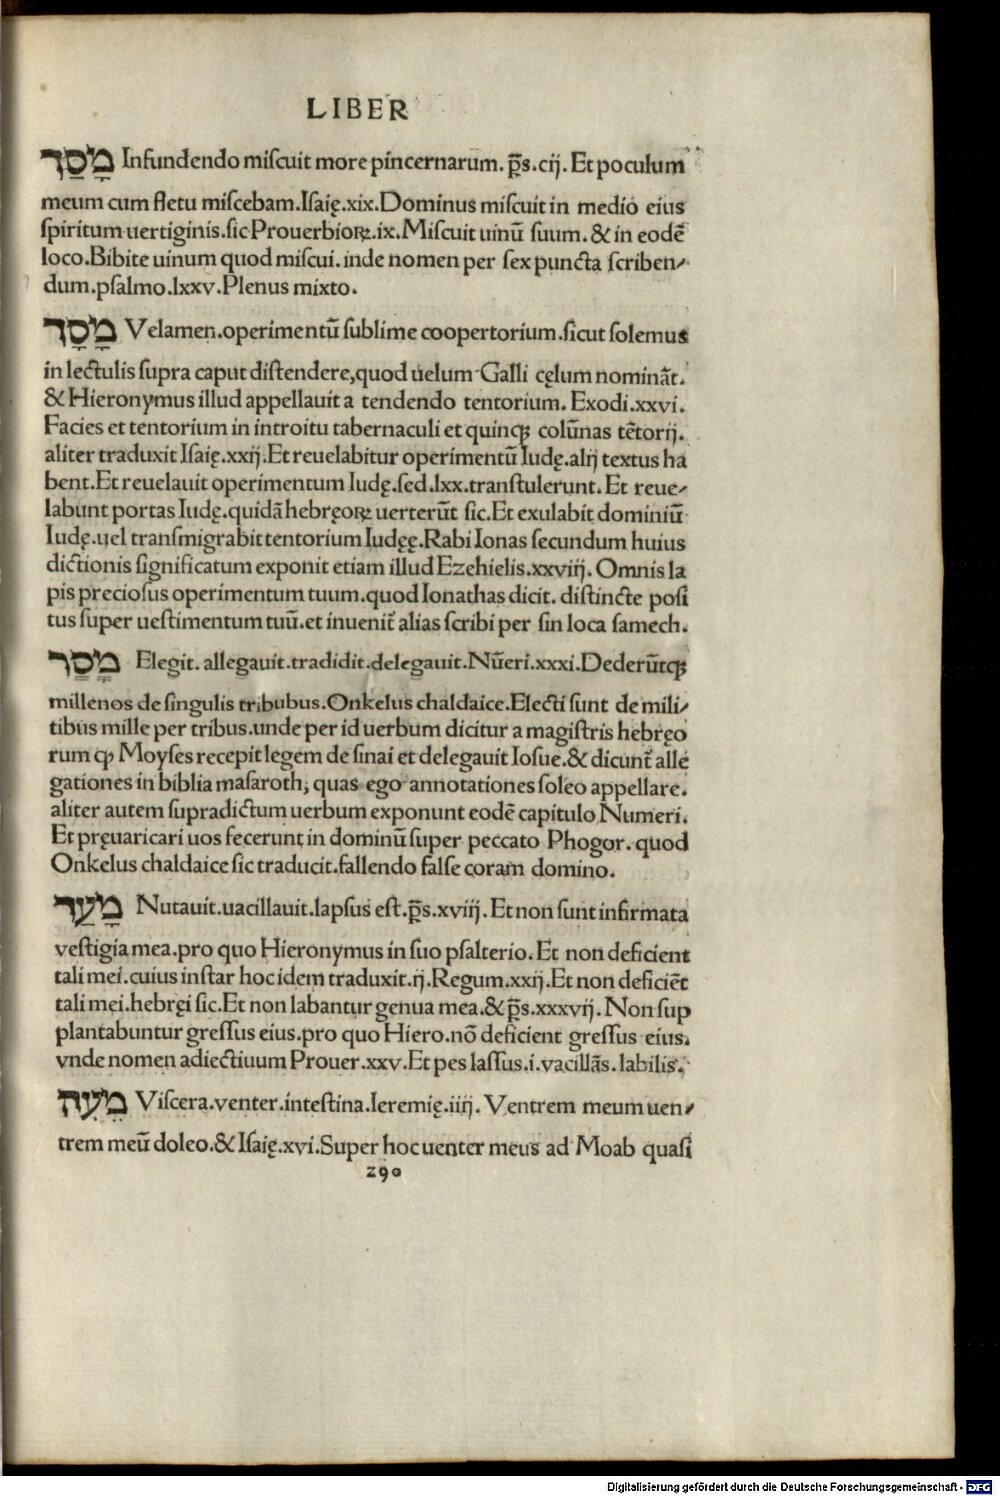 LIBER
מָסַךְ Infundendo miſcuit more pincernarum. p̄s. cij. Et poculum
meum cum fletu miſcebam. Iſaię. xix. Dominus miſcuit in medio eius
ſpiritum uertiginis. ſic Prouerbioꝝ. ix. Miſcuit uinū ſuum. & in eodē
loco. Bibite uinum quod miſcui. inde nomen per ſex puncta ſcriben⸗
dum. pſalmo. lxxv. Plenus mixto.
מָסָךְ Velamen. operimentū ſublime coopertorium. ſicut ſolemus
in lectulis ſupra caput diſtendere, quod uelum Galli cęlum nomināt.
& Hieronymus illud appellauit a tendendo tentorium. Exodi. xxvi.
Facies et tentorium in introitu tabernaculi et quinqꝫ colūnas tētorij.
aliter traduxit Iſaię. xxij. Et reuelabitur operimentū Iudę. alij textus ha
bent. Et reuelauit operimentum Iudę. ſed. lxx. tranſtulerunt. Et reue⸗
labunt portas Iudę. quidā hebręoꝝ uerterūt ſic. Et exulabit dominiū
Iudę. uel tranſmigrabit tentorium Iudęę. Rabi Ionas ſecundum huius
dictionis ſignificatum exponit etiam illud Ezehielis. xxviij. Omnis la
pis precioſus operimentum tuum. quod Ionathas dicit. diſtincte poſi
tus ſuper ueſtimentum tuū. et inuenit̄ alias ſcribi per ſin loca ſamech.
מָסַר Elegit. allegauit. tradidit. delegauit. Nūeri. xxxi. Dederūtqꝫ
millenos de ſingulis tribubus. Onkelus chaldaice. Electi ſunt de mili⸗
tibus mille per tribus. unde per id uerbum dicitur a magiſtris hebręo
rum ꝙ Moyſes recepit legem de ſinai et delegauit Ioſue. & dicunt̄ alle
gationes in biblia maſaroth, quas ego annotationes ſoleo appellare.
aliter autem ſupradictum uerbum exponunt eodē capitulo Numeri.
Et pręuaricari uos fecerunt in dominū ſuper peccato Phogor. quod
Onkelus chaldaice ſic traducit. fallendo falſe coram domino.
מָעַד Nutauit. uacillauit. lapſus eſt. p̄s. xviij. Et non ſunt infirmata
veſtigia mea. pro quo Hieronymus in ſuo pſalterio. Et non deficient
tali mei. cuius inſtar hoc idem traduxit. ij. Regum. xxij. Et non deficiēt
tali mei. hebręi ſic. Et non labantur genua mea. & p̄s. xxxvij. Non ſup
plantabuntur greſſus eius. pro quo Hiero. nō deficient greſſus eius.
vnde nomen adiectiuum Prouer. xxv. Et pes laſſus. i. vacillās. labilis.
מֵעֶה Viſcera. venter. inteſtina. Ieremię. iiij. Ventrem meum uen⸗
trem meū doleo. & Iſaię. xvi. Super hoc uenter meus ad Moab quaſi
290
Digitalisierung gefördert durch die Deutsche Forschungsgemeinschaft - DFG